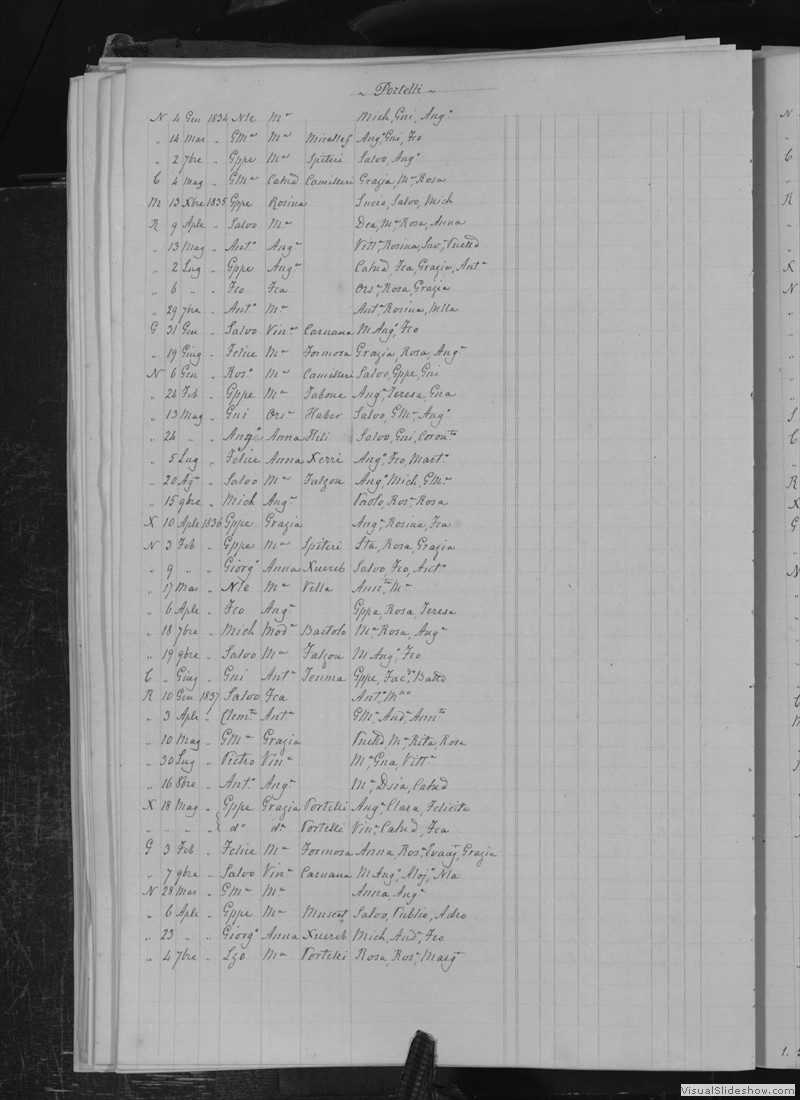 ~ Portelli ~
N 4 Gen 1834 Nle Mª Mich, Gni, Angº
" 14 Mar " GMª Mª Micallef Angº, Gni, Fco
" 2 7bre " Gppe Mª Spiteri Salvo, Angº
C 4 Mag " GMª Catnd Camilleri Grazia, Mª, Rosa
M 13 Xbre 1835 Gppe Rosina Lucio, Salvo, Mich
R 9 Aple " Salvo Mª Dea, Mª, Rosa, Anna
" 13 Mag " Antº Angª Vittª, Rosina, Savª,
" 2 Lug " Gppe Angª Catnd, Fca, Grazia, Antª
" 6 " " Fco Fca Orsª, Rosa, Grazia
" 29 7bre " Antº Mª Antª, Rosina,
G 31 Gen " Salvo Vinª Caruana M Angº, Fco
" 19 Giug " Felice Mª Formosa Grazia, Rosa, Angª
N 6 Gen " Rosº Mª Camilleri Salvo, Gppe, Gni
" 24 Feb " Gppe Mª Tabone Angª, Teresa, Gna
" 13 Mag " Gni Orsª Haber Salvo, GMª, Angº
" 24 " " Angº Anna Fliti Salvo, Gni,
" 5 Lug " Felice Anna Xerri Angº, Fco, Martº
" 20 Agº " Salvo Mª Falzon Angº, Mich, GMª
" 15 9bre " Mich Angª Paolo, Rosº, Rosa
X 10 Aple 1836 Gppe Grazia Angª, Rosina, Fca
N 3 Feb " Gppe Mª Spiteri Sta, Rosa, Grazia
" 9 " " Giorgº Anna Xuereb Salvo, Fco, Antº
" 17 Mar " Nle Mª Vella Annta, Mª
" 6 Aple " Fco Angª Gppa, Rosa, Teresa
" 18 7bre " Mich Modª Bartolo Mª, Rosa, Angª
" 19 9bre " Salvo Mª Falzon M Angº, Fco
C " Giug " Gni Antª Teuma Gppe,
R 10 Gen 1837 Salvo Fca Antº,
" 3 Aple " Clemte Antª GMª, Andª, Annta
" 10 Mag " GMª Grazia Mª, Rita, Rosa
" 30 Lug " Pietro Vinª Mª, Gna, Vittª
" 16 8bre " Antº Angª Mª, Dsia, Catnd
X 18 Mag " Gppe Grazia Portelli Angª, Clara, Felicita
" " " " { dº dª Portelli Vinª, Catnd, Fca
G 3 Feb " Felice Mª Formosa Anna, Rosª, Grazia
" 7 9bre " Salvo Vinª Caruana M Angº, Alojº, Nla
N 28 Mar " GMª Mª Anna, Angª
" 6 Aple " Gppe Mª Muscat Salvo, Publio, Adeo
" 23 " " Giorgº Anna Xuereb Mich, Andª, Fco
" 4 7bre " Lzo Mª Portelli Rosa, Rosª, Margª
VisualSlideshow.com